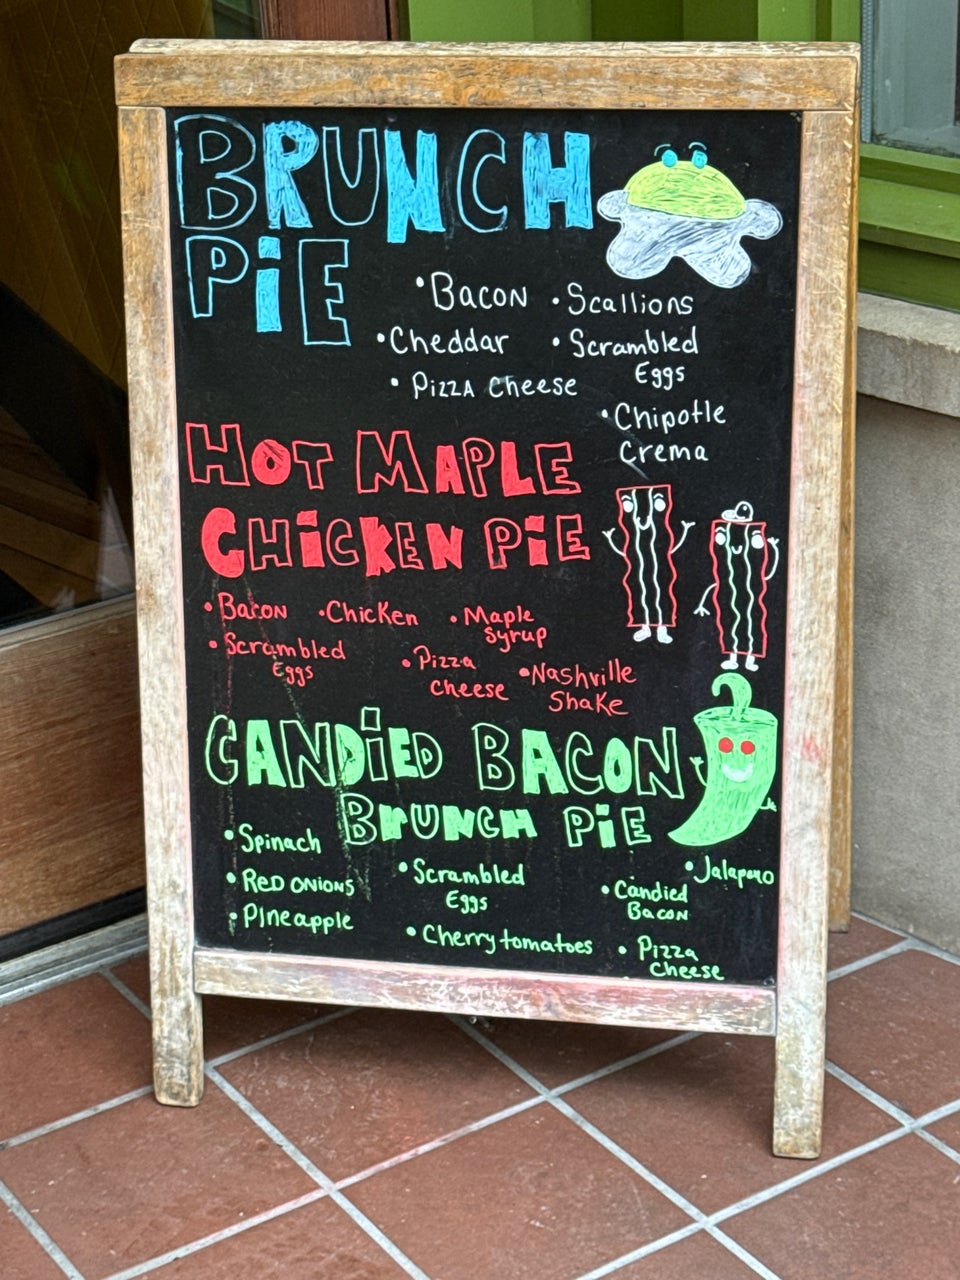 BRUNCH
PiE
• Bacon
• Scallions
• Cheddar
• Scrambled
Eggs
• Pizza Cheese
• Chipotle
Crema
HOT MAPLE
CHiCKEN PiE
• Bacon
• Chicken
• Maple
Syrup
• Scrambled
Eggs
• Pizza
Cheese
• Nashville
Shake
CANDiED BACON
BrUNCH PiE
• Spinach
• Scrambled
Eggs
• Jalapeno
• Red onions
• Candied
Bacon
• PIneapple
• Cherry tomatoes
• Pizza
Cheese